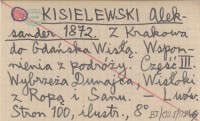 KISIELEWSKI Alek-
sander 1872. Z Krakowa
do Gdańska Wisłą. Wspom-
nienia z podróży. Część III.
Wybrzeża Dunajca, Wisłoki
z Ropą i Sanu. Lwów.
Stron 100, ilustr., 8°